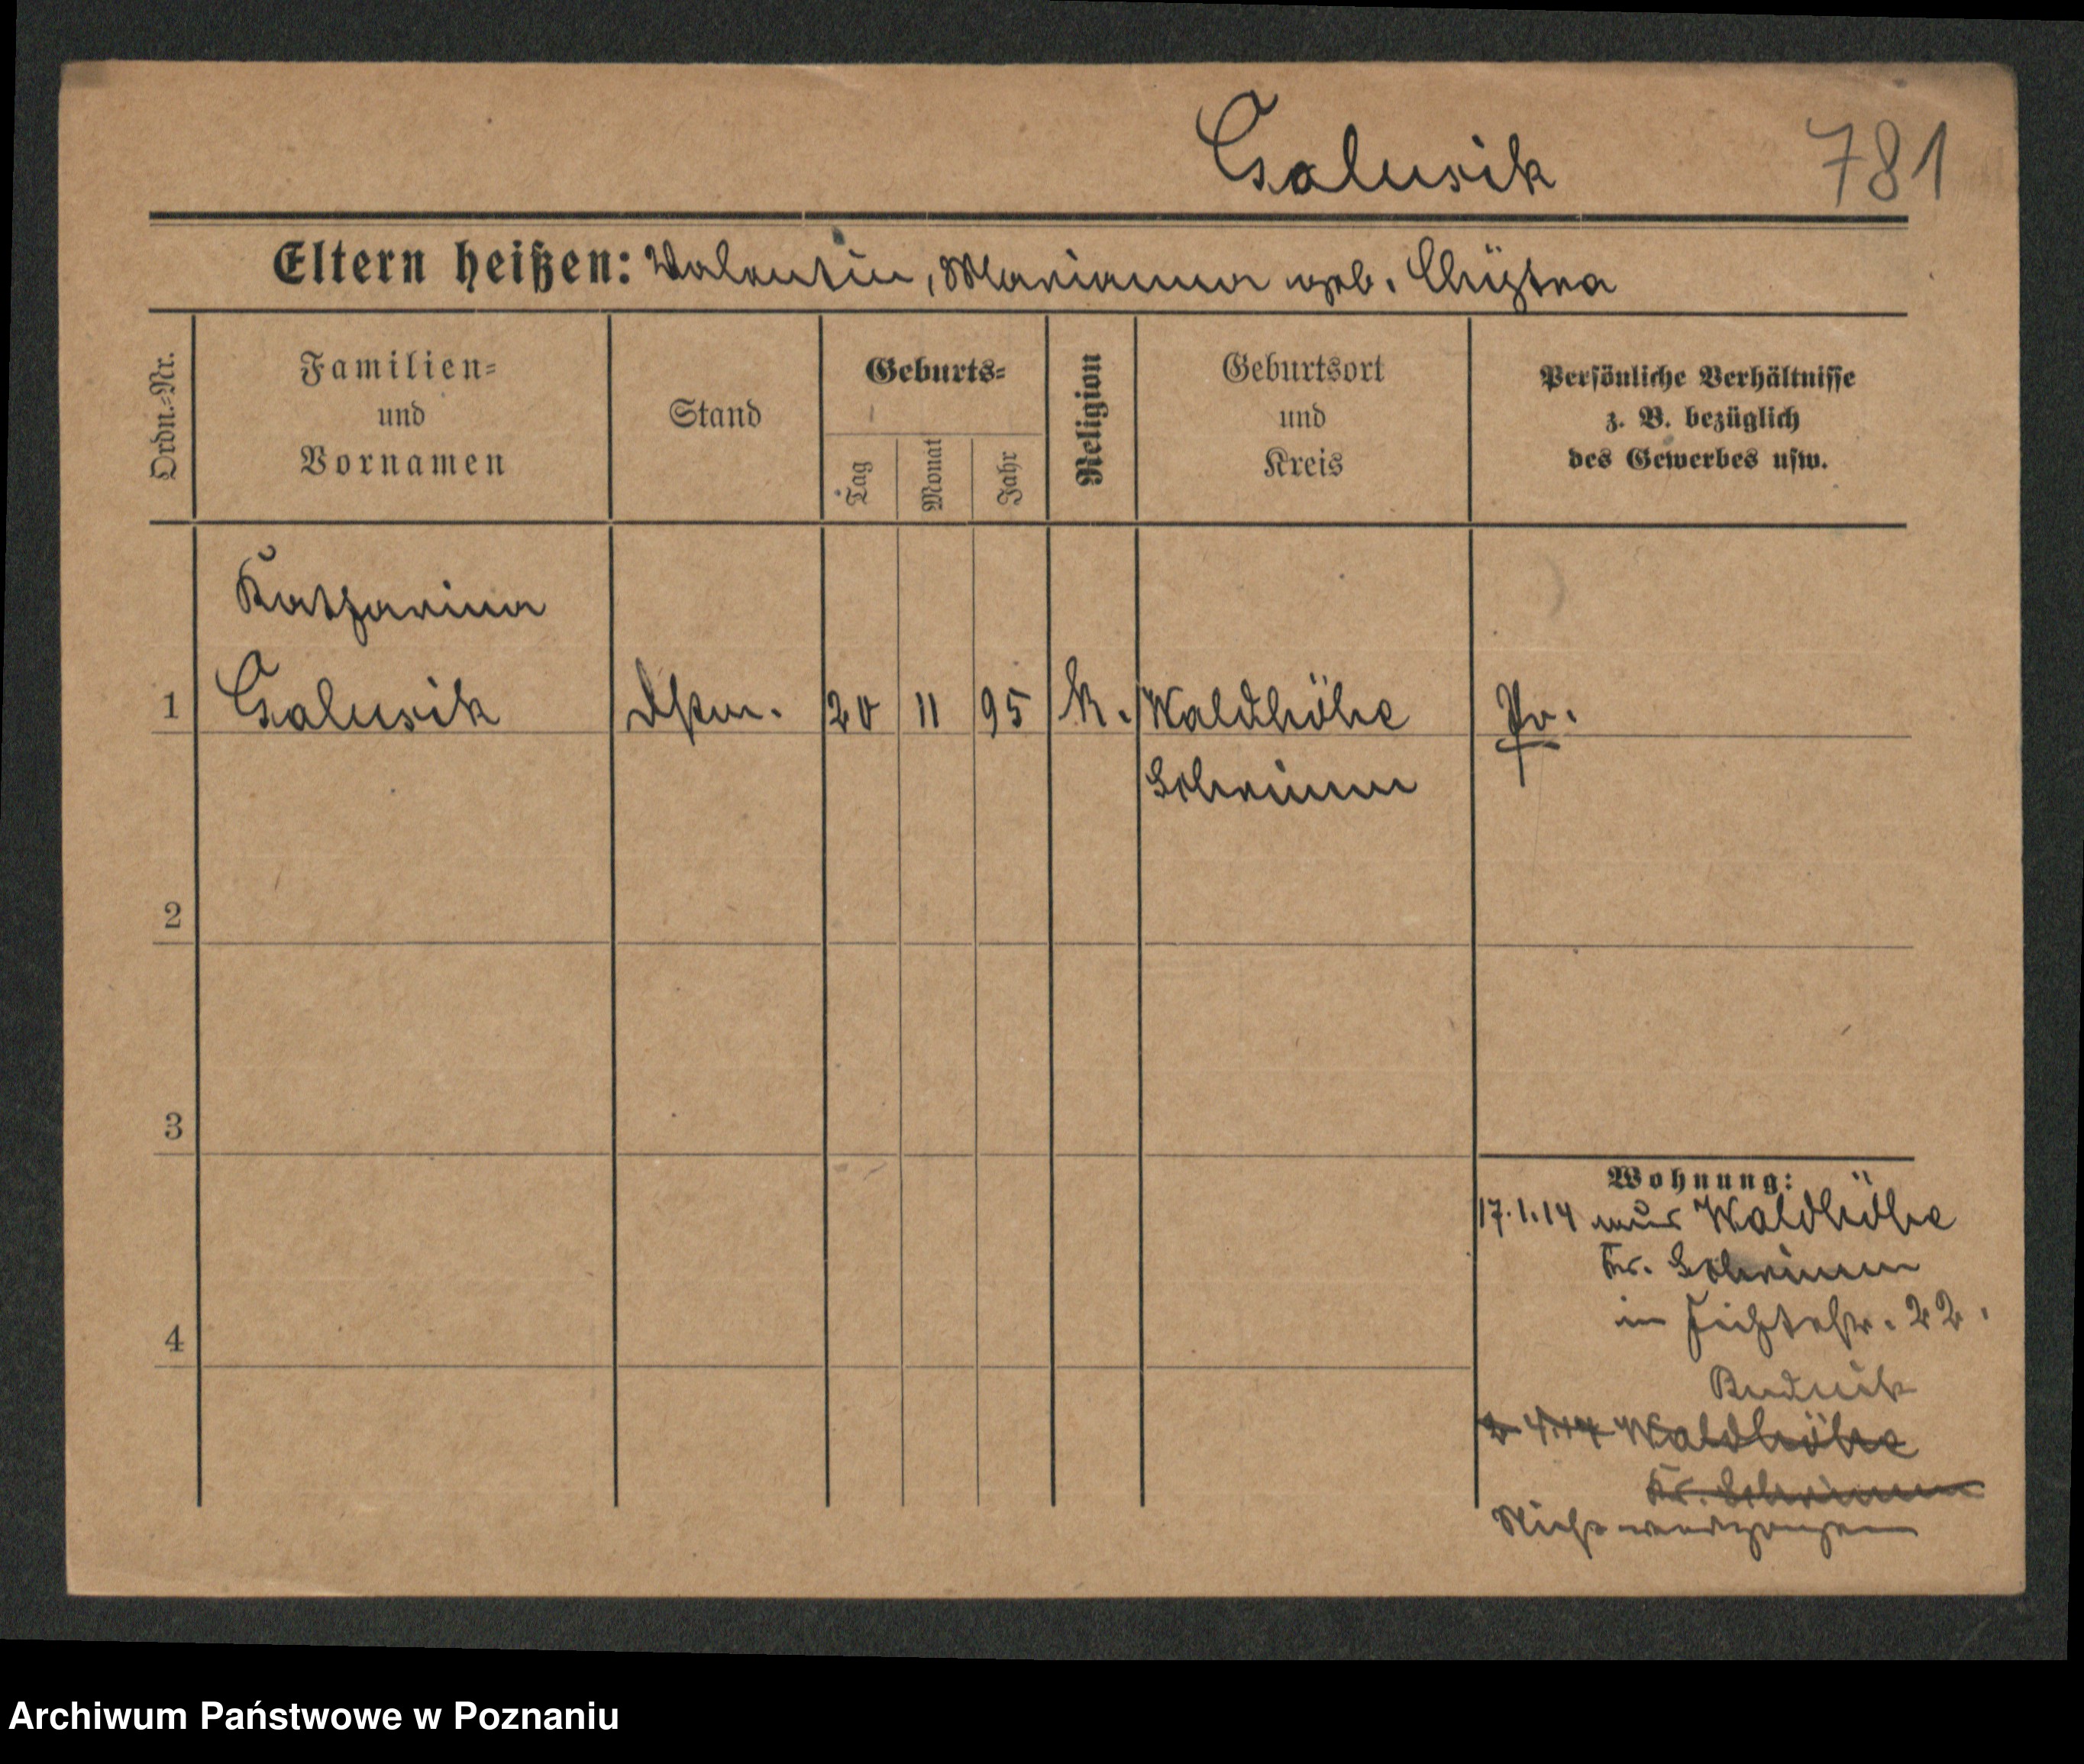 Galusik 781
Eltern heißen: Valentin, Marianna geb.
Ordn.-Nr.
Familien-
und
Vornamen
Stand
Geburts-
Tag
Monat
Jahr
Religion
Geburtsort
und
Kreis
Persönliche Verhältnisse
z. B. bezüglich
des Gewerbes usw.
Katharina
1 Galusik 20 11 95 K. Waldhöhe
Schrimm
2
3
Wohnung:
17.1.14 aus Waldhöhe
Kr. Schrimm
in Fichtestr. 22.
4
Rudnik
4.14 Waldhöhe
Kr. Schrimm
Nicht
Archiwum Państwowe w Poznaniu